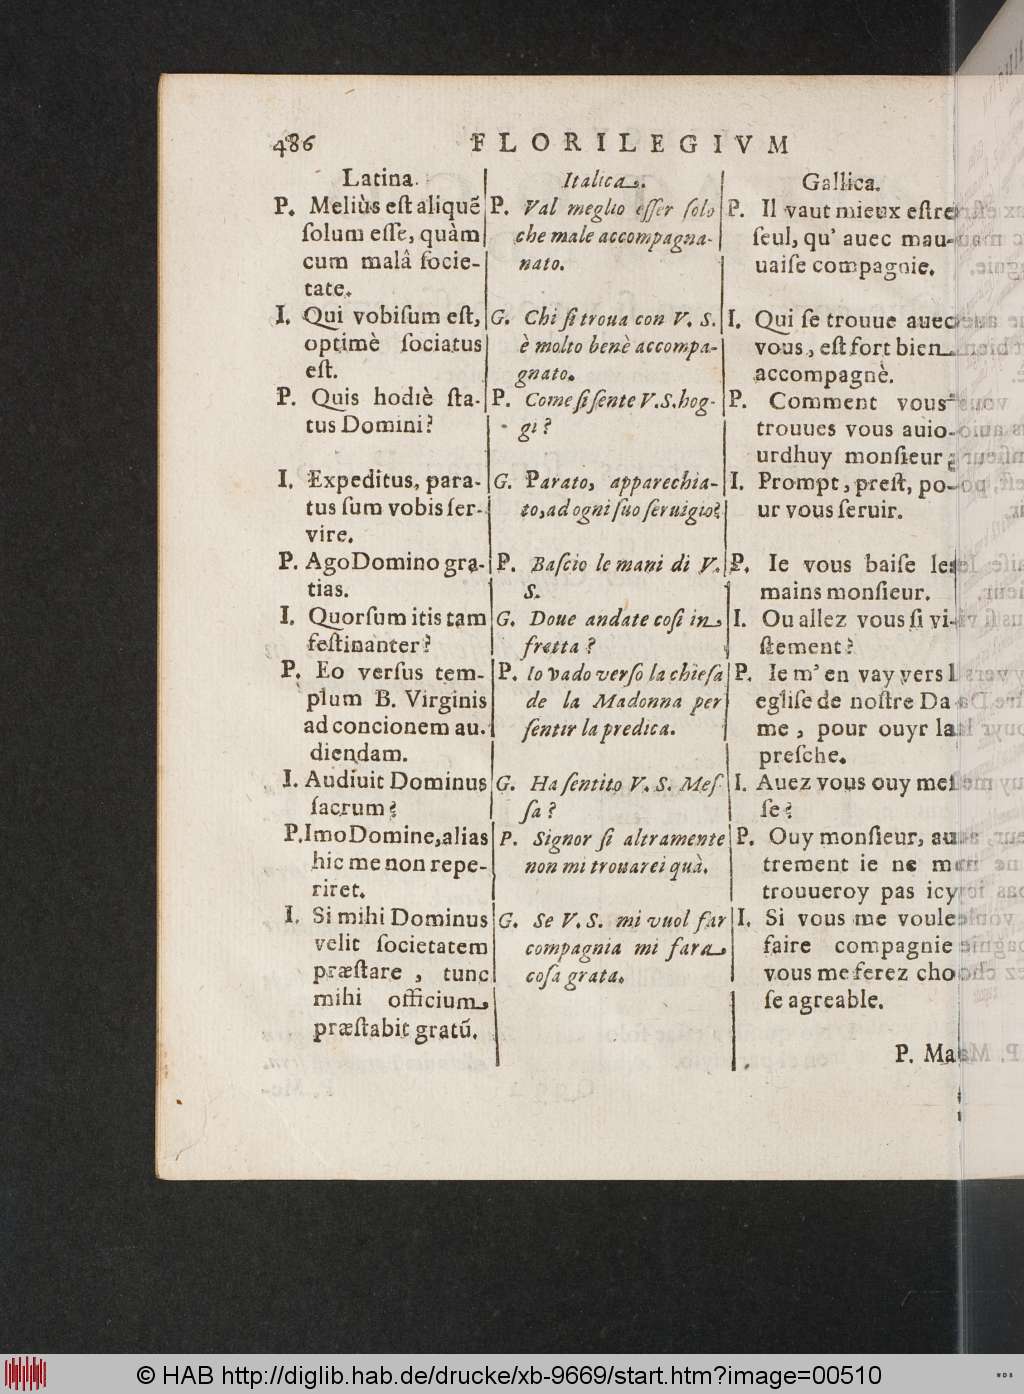 486 FLORILEGIVM
Latina.
P. Meliùs eſt aliquẽ
ſolum eſſe, quàm
cum malâ ſocie-
tate.
I. Qui vobiſum eſt,
optimè ſociatus
eſt.
P. Quis hodiè ſta-
tus Domini?
I. Expeditus, para-
tus ſum vobis ſer-
vire.
P. Ago Domino gra-
tias.
I. Quorſum itis tam
feſtinanter?
P. Eo verſus tem-
plum B. Virginis
ad concionem au-
diendam.
I. Audiuit Dominus
ſacrum?
P. Imo Domine, alias
hic me non repe-
riret.
I. Si mihi Dominus
velit ſocietatem
præſtare, tunc
mihi officium
præſtabit gratũ.
Italica.
P. Val meglio eſſer ſolo
che male accompagna-
nato.
G. Chi ſi troua con V. S.
è molto benè accompa-
gnato.
P. Come ſi ſente V.S. hog-
gi?
G. Parato, apparechia-
to, ad ogni ſuo ſeruigio?
P. Baſcio le mani di V.
S.
G. Doue andate coſi in
fretta?
P. Io vado verſo la chieſa
de la Madonna per
ſentir la predica.
G. Ha ſentito V. S. Meſ-
ſa?
P. Signor ſi altramente
non mi trouarei quà.
G. Se V. S. mi vuol far
compagnia mi fara
coſa grata.
Gallica.
P. Il vaut mieux eſtre
ſeul, qu' auec mau-
uaiſe compagnie.
I. Qui ſe trouue auec
vous, eſt fort bien
accompagnè.
P. Comment vous
trouues vous auio-
urdhuy monſieur?
I. Prompt, preſt, po-
ur vous ſeruir.
P. Ie vous baiſe les
mains monſieur.
I. Ou allez vous ſi vi-
ſtement?
P. Ie m' en vay vers l
egliſe de noſtre Da
me, pour ouyr la
preſche.
I. Auez vous ouy meſ
ſe?
P. Ouy monſieur, au
trement ie ne me
trouueroy pas icy
I. Si vous me voule
faire compagnie
vous me ferez cho
ſe agreable.
P. Ma
© HAB http://diglib.hab.de/drucke/xb-9669/start.htm?image=00510